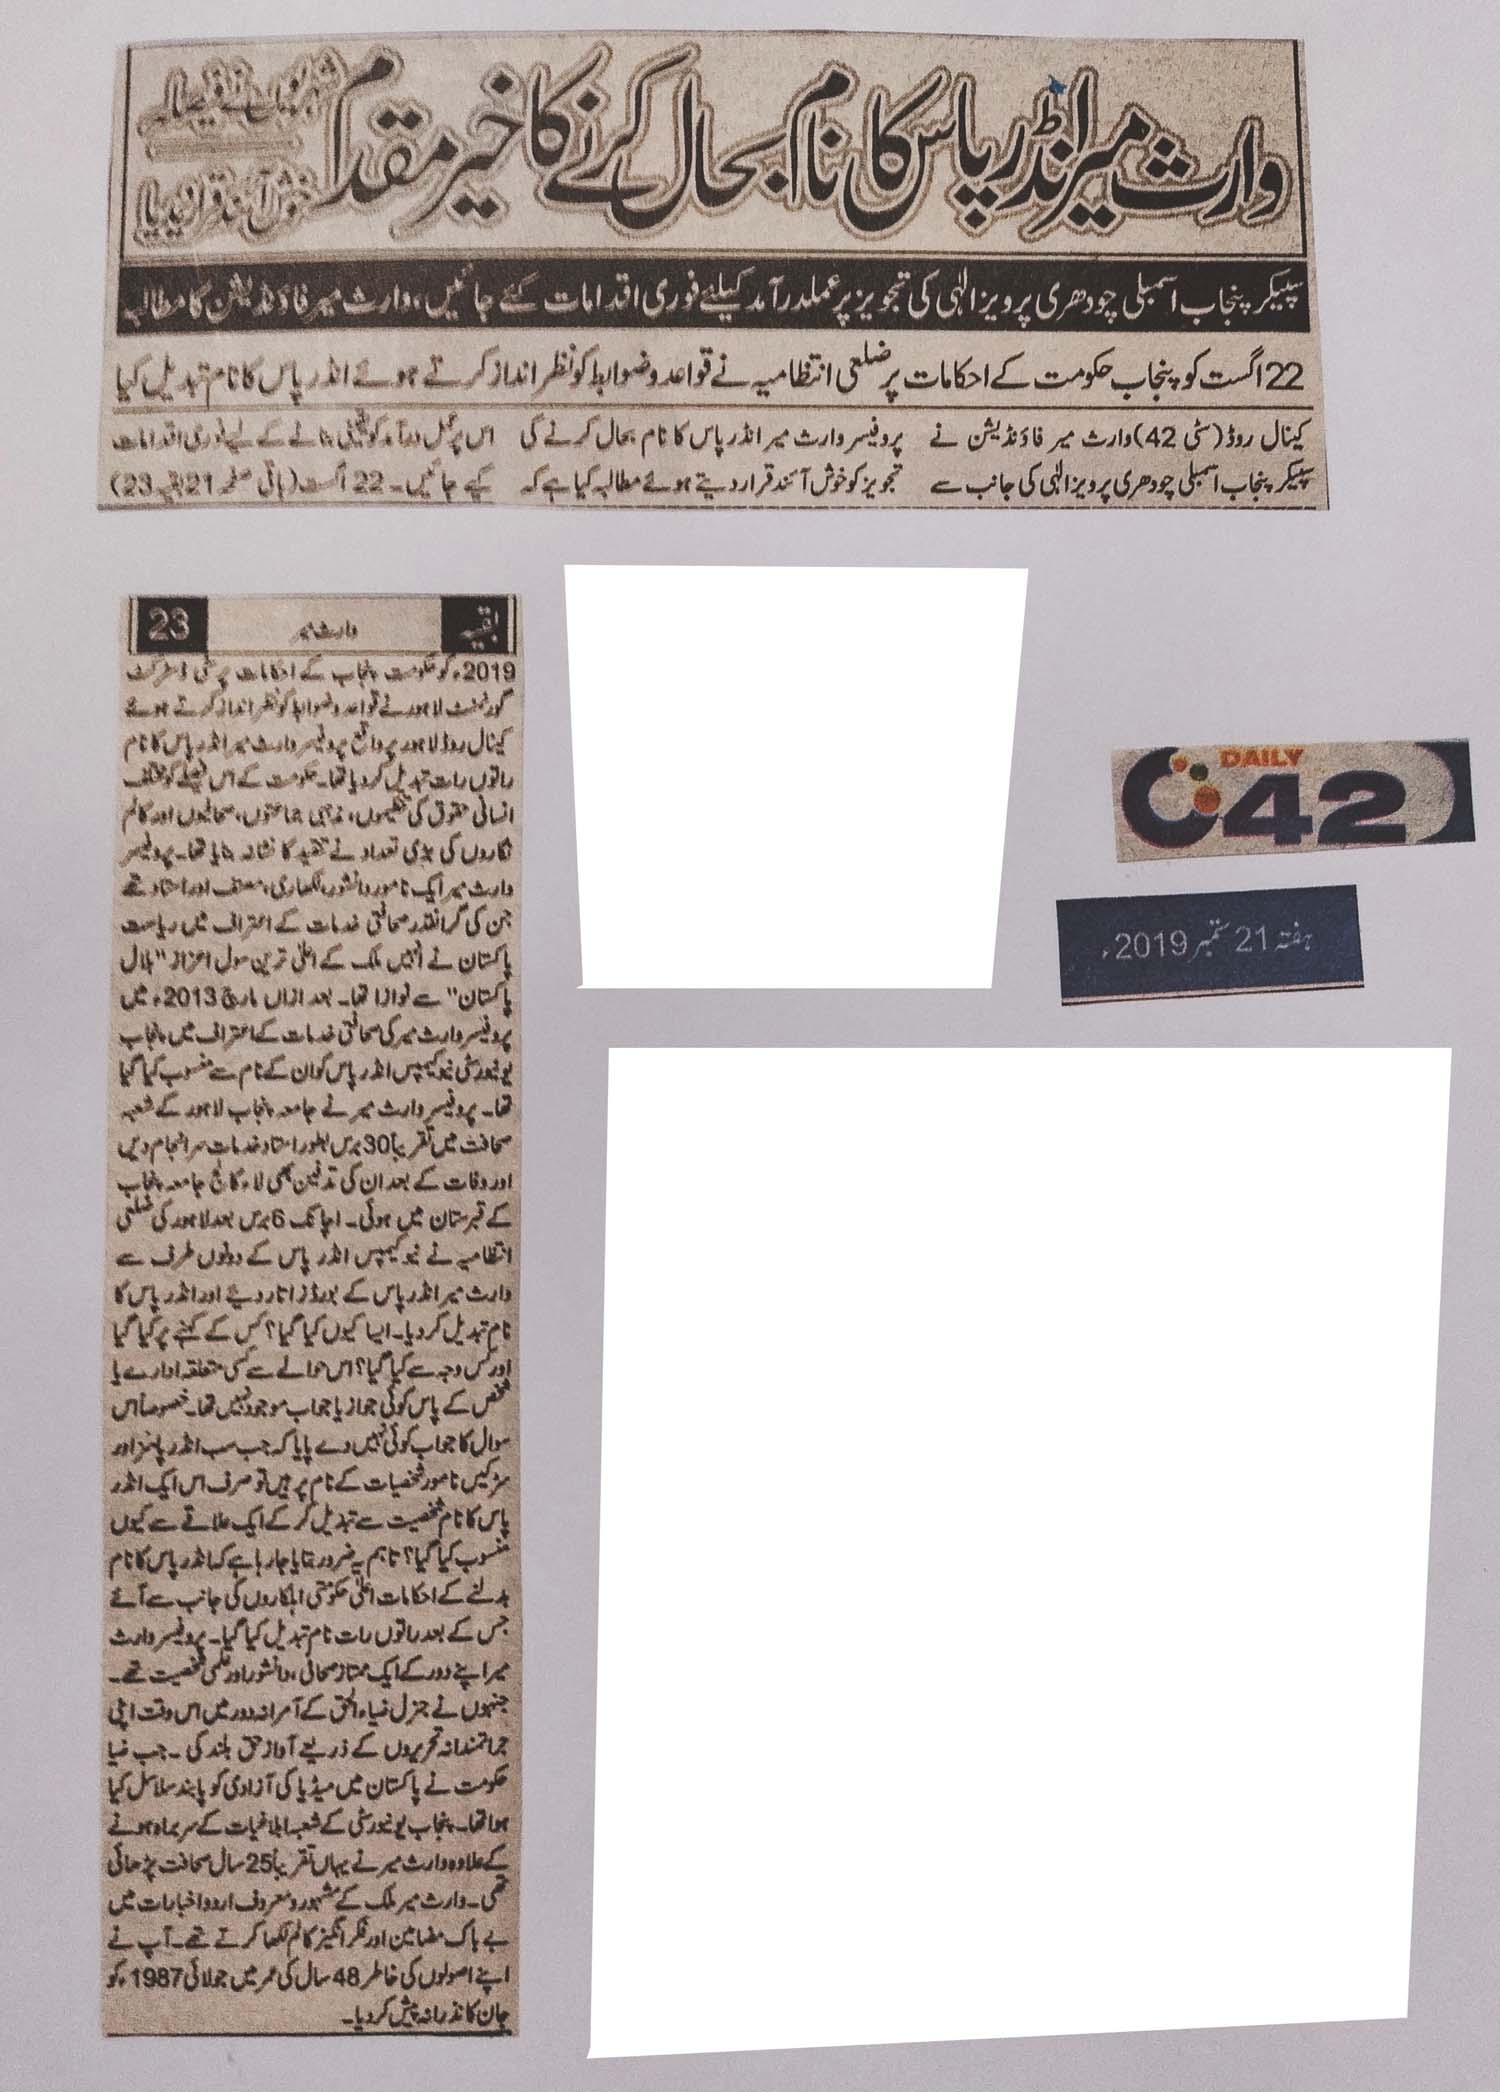 وارث میر انڈر پاس کا نام بحال کرنے کا خیر مقدم
شہریوں نے فیصلہ
خوش آئند قرار دیدیا
سپیکر پنجاب اسمبلی چودھری پرویز الٰہی کی تجویز پر عملدرآمد کیلئے فوری اقدامات کئے جائیں، وارث میر فاؤنڈیشن کا مطالبہ
22 اگست کو پنجاب حکومت کے احکامات پر ضلعی انتظامیہ نے قواعد و ضوابط کو نظر انداز کرتے ہوئے انڈر پاس کا نام تبدیل کیا
کینال روڈ (سٹی 42) وارث میر فاؤنڈیشن نے
سپیکر پنجاب اسمبلی چودھری پرویز الٰہی کی جانب سے
پروفیسر وارث میر انڈر پاس کا نام بحال کرنے کی
تجویز کو خوش آئند قرار دیتے ہوئے مطالبہ کیا ہے کہ
اس پر عمل درآمد کو یقینی بنانے کے لیے فوری اقدامات
کیے جائیں۔ 22 اگست (باقی صفحہ 21 بقیہ 23)
بقیہ وارث میر 23
2019ء کو حکومت پنجاب کے احکامات پر سٹی ڈسٹرکٹ
گورنمنٹ لاہور نے قواعد و ضوابط کو نظر انداز کرتے ہوئے
کینال روڈ لاہور پر واقع پروفیسر وارث میر انڈر پاس کا نام
راتوں رات تبدیل کر دیا تھا۔ حکومت کے اس فیصلے کو مختلف
انسانی حقوق کی تنظیموں، مذہبی جماعتوں، صحافیوں اور کالم
نگاروں کی بڑی تعداد نے تنقید کا نشانہ بنایا تھا۔ پروفیسر
وارث میر ایک نامور دانشور، لکھاری، مصنف اور استاد تھے
جن کی گرانقدر صحافتی خدمات کے اعتراف میں ریاست
پاکستان نے انہیں ملک کے اعلیٰ ترین سول اعزاز "ہلال
پاکستان" سے نوازا تھا۔ بعد ازاں مارچ 2013ء میں
پروفیسر وارث میر کی صحافتی خدمات کے اعتراف میں پنجاب
یونیورسٹی نیو کیمپس انڈر پاس کو ان کے نام سے منسوب کیا گیا
تھا۔ پروفیسر وارث میر نے جامعہ پنجاب لاہور کے شعبہ
صحافت میں تقریباً 30 برس بطور استاد خدمات سر انجام دیں
اور وفات کے بعد ان کی تدفین بھی لاء کالج جامعہ پنجاب
کے قبرستان میں ہوئی۔ اچانک 6 برس بعد لاہور کی ضلعی
انتظامیہ نے نیو کیمپس انڈر پاس کے دونوں طرف سے
وارث میر انڈر پاس کے بورڈز اتار دیے اور انڈر پاس کا
نام تبدیل کر دیا۔ ایسا کیوں کیا گیا؟ کس کے کہنے پر کیا گیا
اور کس وجہ سے کیا گیا؟ اس حوالے سے کسی متعلقہ ادارے یا
شخص کے پاس کوئی جواز یا جواب موجود نہیں تھا۔ خصوصاً اس
سوال کا جواب کوئی نہیں دے پایا کہ جب سب انڈر پاسز اور
سڑکیں نامور شخصیات کے نام پر ہیں تو صرف اس ایک انڈر
پاس کا نام شخصیت سے تبدیل کر کے ایک علاقے سے کیوں
منسوب کیا گیا؟ تاہم یہ ضرور بتایا جا رہا ہے کہ انڈر پاس کا نام
بدلنے کے احکامات اعلیٰ حکومتی اہلکاروں کی جانب سے آئے
جس کے بعد راتوں رات نام تبدیل کیا گیا۔ پروفیسر وارث
میر اپنے دور کے ایک ممتاز صحافی، دانشور اور علمی شخصیت تھے۔
جنہوں نے جنرل ضیاء الحق کے آمرانہ دور میں اس وقت اپنی
جراتمندانہ تحریروں کے ذریعے آواز حق بلند کی۔ جب ضیا
حکومت نے پاکستان میں میڈیا کی آزادی کو پابند سلاسل کیا
ہوا تھا۔ پنجاب یونیورسٹی کے شعبہ ابلاغیات کے سربراہ ہونے
کے علاوہ وارث میر نے یہاں تقریباً 25 سال صحافت پڑھائی
تھی۔ وارث میر ملک کے مشہور و معروف اردو اخبارات میں
بے باک مضامین اور فکر انگیز کالم لکھا کرتے تھے۔ آپ نے
اپنے اصولوں کی خاطر 48 سال کی عمر میں جولائی 1987ء کو
جان کا نذرانہ پیش کر دیا۔
DAILY
42
ہفتہ 21 ستمبر 2019ء